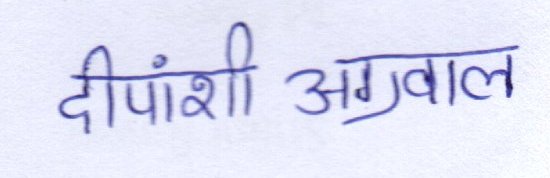 दीपांशी अग्रवाल